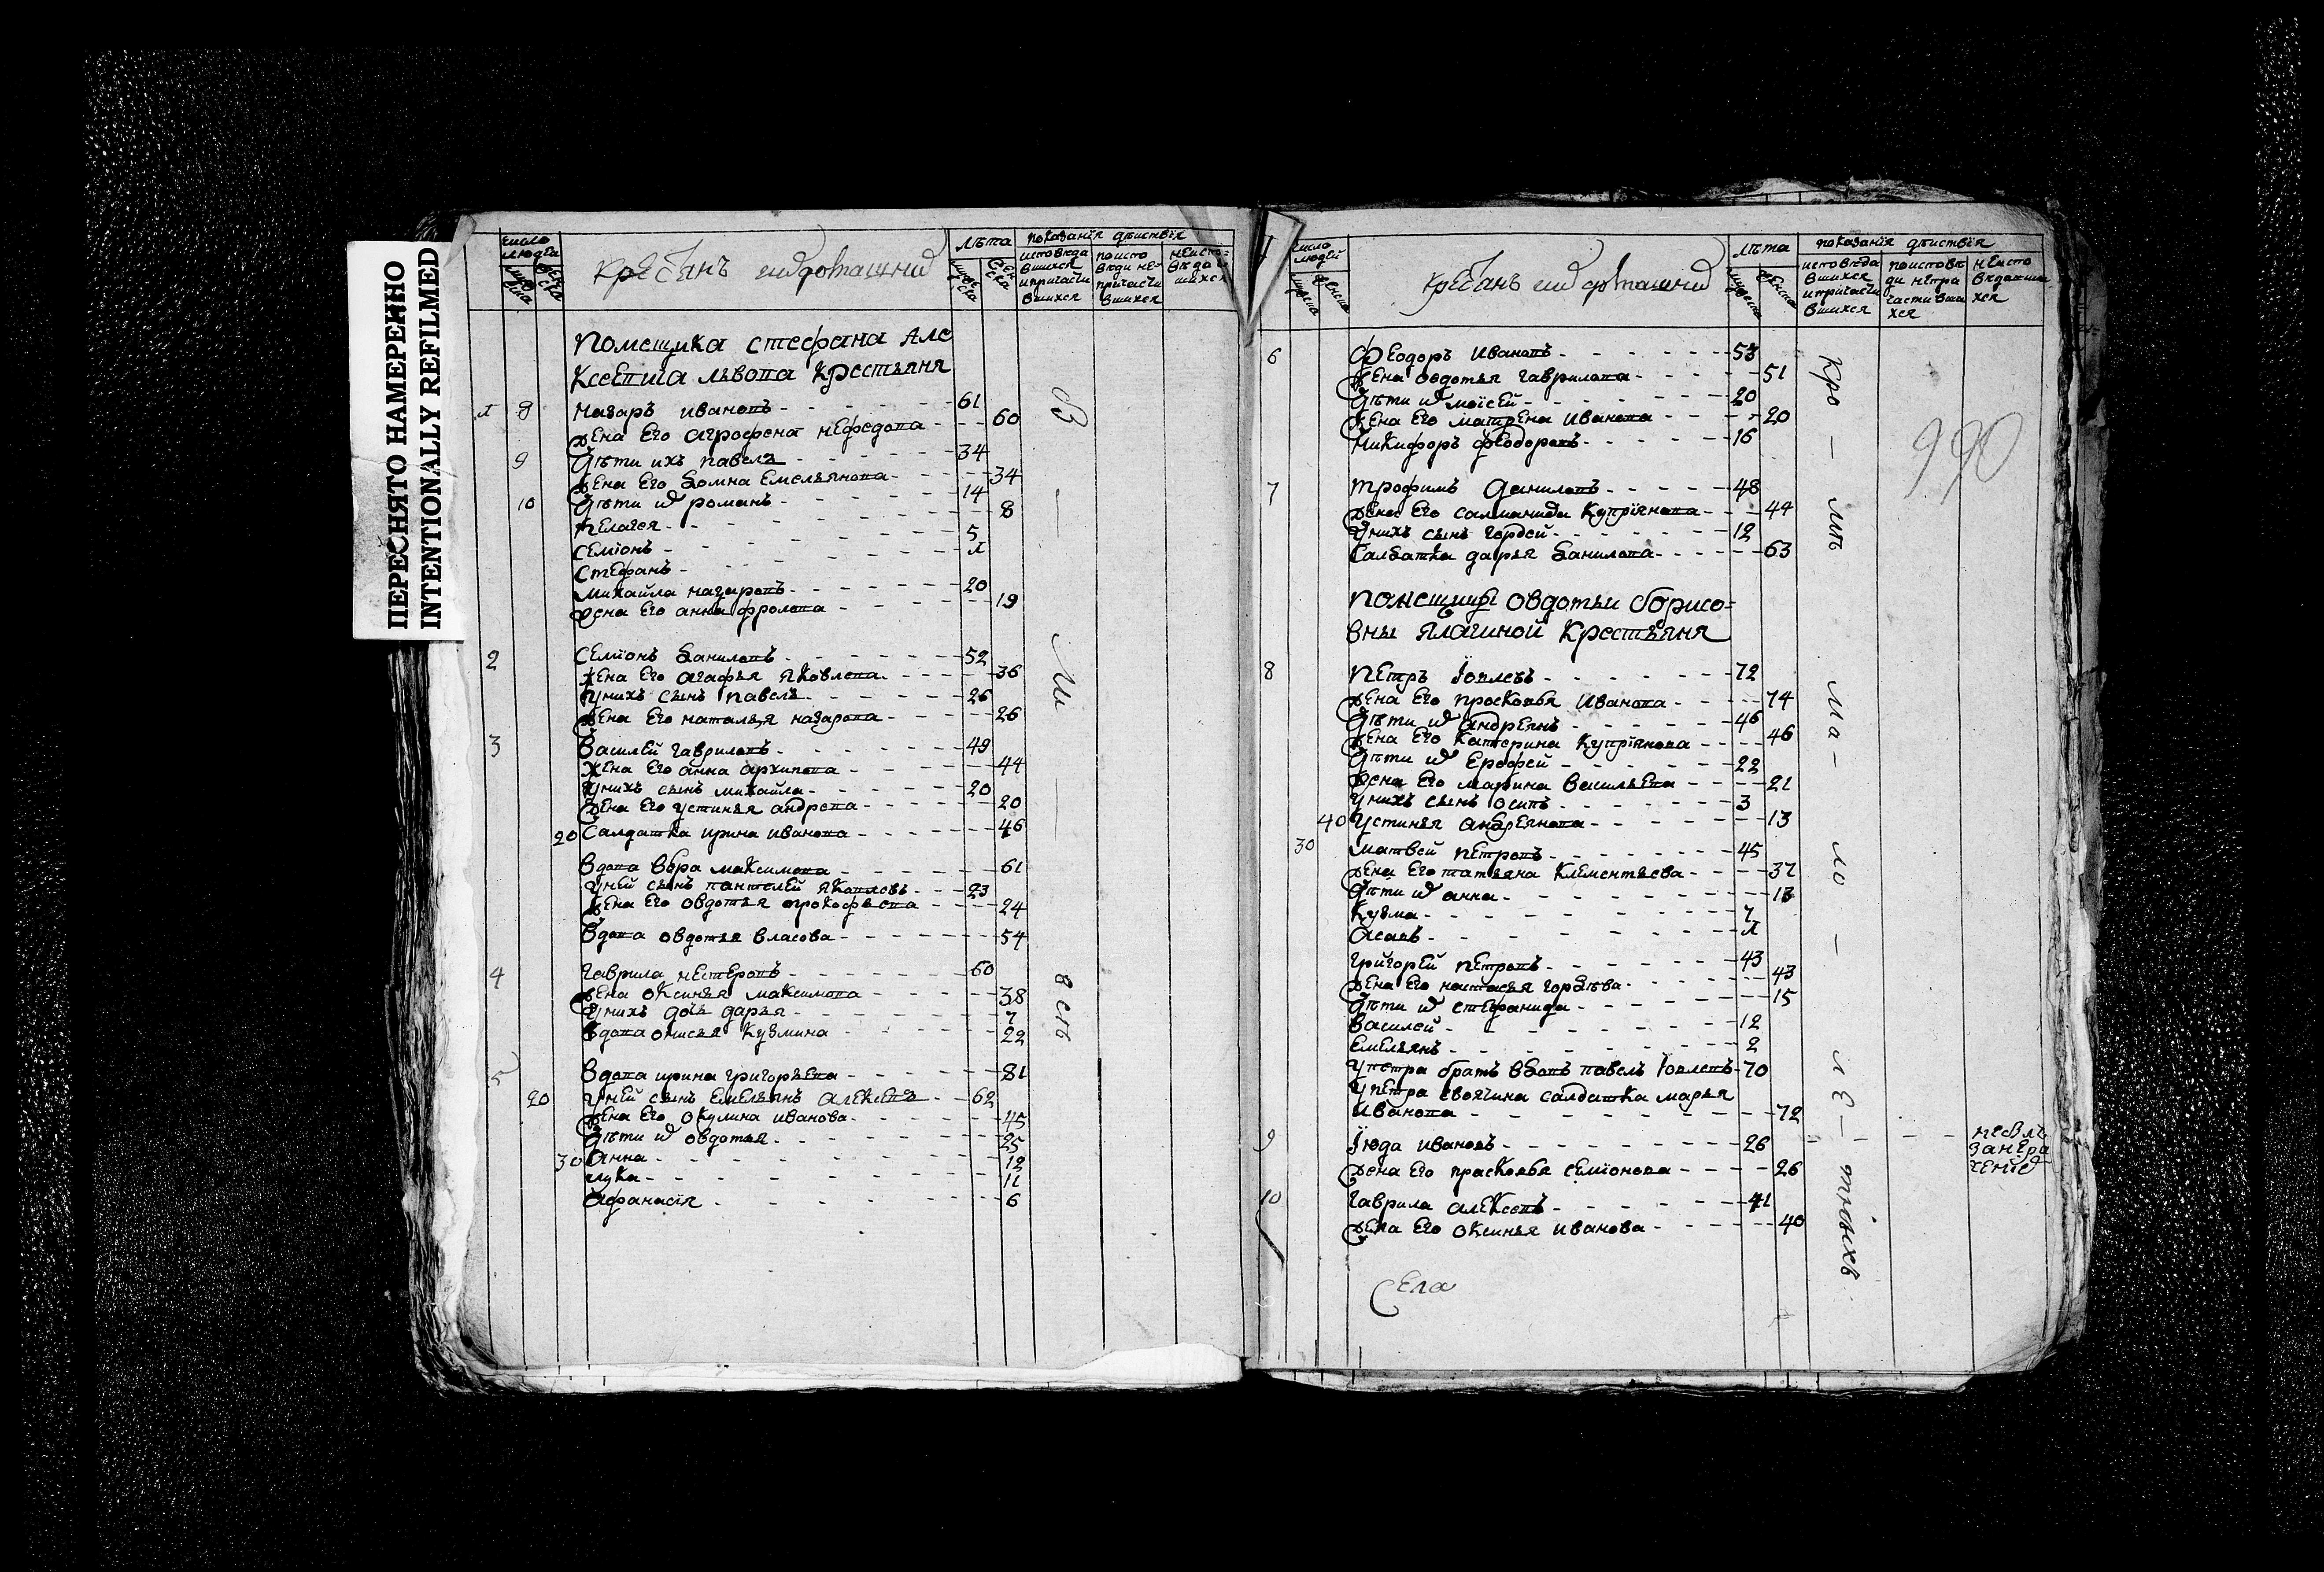 ПЕРЕСНЯТО НАМЕРЕННО
INTENTIONALLY REFILMED
число людей
лѣта
показанія дѣиствїя
исповѣда вшихся и причасти вшихся
по испо вѣди не причасти вшихся
не испо- вѣда в шихся
Помещика стефана Але
ксеевича львова крестьяня
1 8 назаръ ивановъ - 61
жена его агрофена нефедова - 60
9 дѣти ихъ павелъ - 34
жена его домна Емельянова - 34
10 дѣти ихъ романъ - 14
пелагея - 8
семионъ - 5
стефанъ - 1
михайла назаровъ - 20
жена его анна фролова - 19
2 семионъ даниловъ - 52
жена его агафья яковлева - 36
у нихъ сынъ павелъ - 26
жена его наталья назарова - 26
3 василей гавриловъ - 49
жена его анна архипова - 44
у нихъ сынъ михайла - 20
жена его устинья андреева - 20
20 салдатка ирина иванова - 46
вдова вера максимова - 61
у ней сынъ пантелей яковлевъ - 23
жена его овдотья прокофьева - 24
вдова овдотья власова - 54
4 гаврила нестеровъ - 60
жена оксинья максимова - 38
у нихъ дочь дарья - 7
вдова онисья кузмина - 22
5 вдова ирина григорьева - 81
20 у ней сынъ емельянъ алексеевъ - 62
жена его окулина иванова - 45
дѣти ихъ овдотья - 25
30 анна - 12
лука - 11
афанасія - 6
число людей
лѣта
показанія дѣиствїя
исповѣда вшихся и причасти вшихся
по исповѣ ди не при частивши хся
не испо вѣдавши хся
990
6 Феодоръ ивановъ - 53
жена овдотья гаврилова - 51
дѣти ихъ моисей - 20
жена его матрена иванова - 20
никифоръ феодоровъ - 16
7 трофимъ даниловъ - 48
жена его саламанида купріянова - 44
у нихъ сынъ гордей - 12
салдатка дарья данилова - 63
помещицы овдотьи борисо=
вны Ялагиной крестьяня
8 петръ іовлевъ - 72
жена его просковья иванова - 74
дѣти ихъ андреянъ - 46
жена его катерина купріянова - 46
дѣти ихъ ерофей - 22
жена его марина васильева - 21
у нихъ сынъ осипъ - 3
40 устинья андреянова - 13
30 матвей петровъ - 45
жена его татьяна клементьева - 37
дѣти ихъ анна - 13
кузма - 7
григорей петровъ - 43
жена его настасья гордѣева - 43
дѣти ихъ стефанида - 15
василей - 12
емельянъ - 2
у петра братъ вдовъ павелъ іовлевъ - 70
у петра своячина салдатка марья
иванова - 72
9 іюда ивановъ - 26
жена его прасковья семионова - 26
10 гаврила алексеевъ - 41
жена его оксинья иванова - 40
Кро - мѣ ма - ло - лѣ - тныхъ
Села